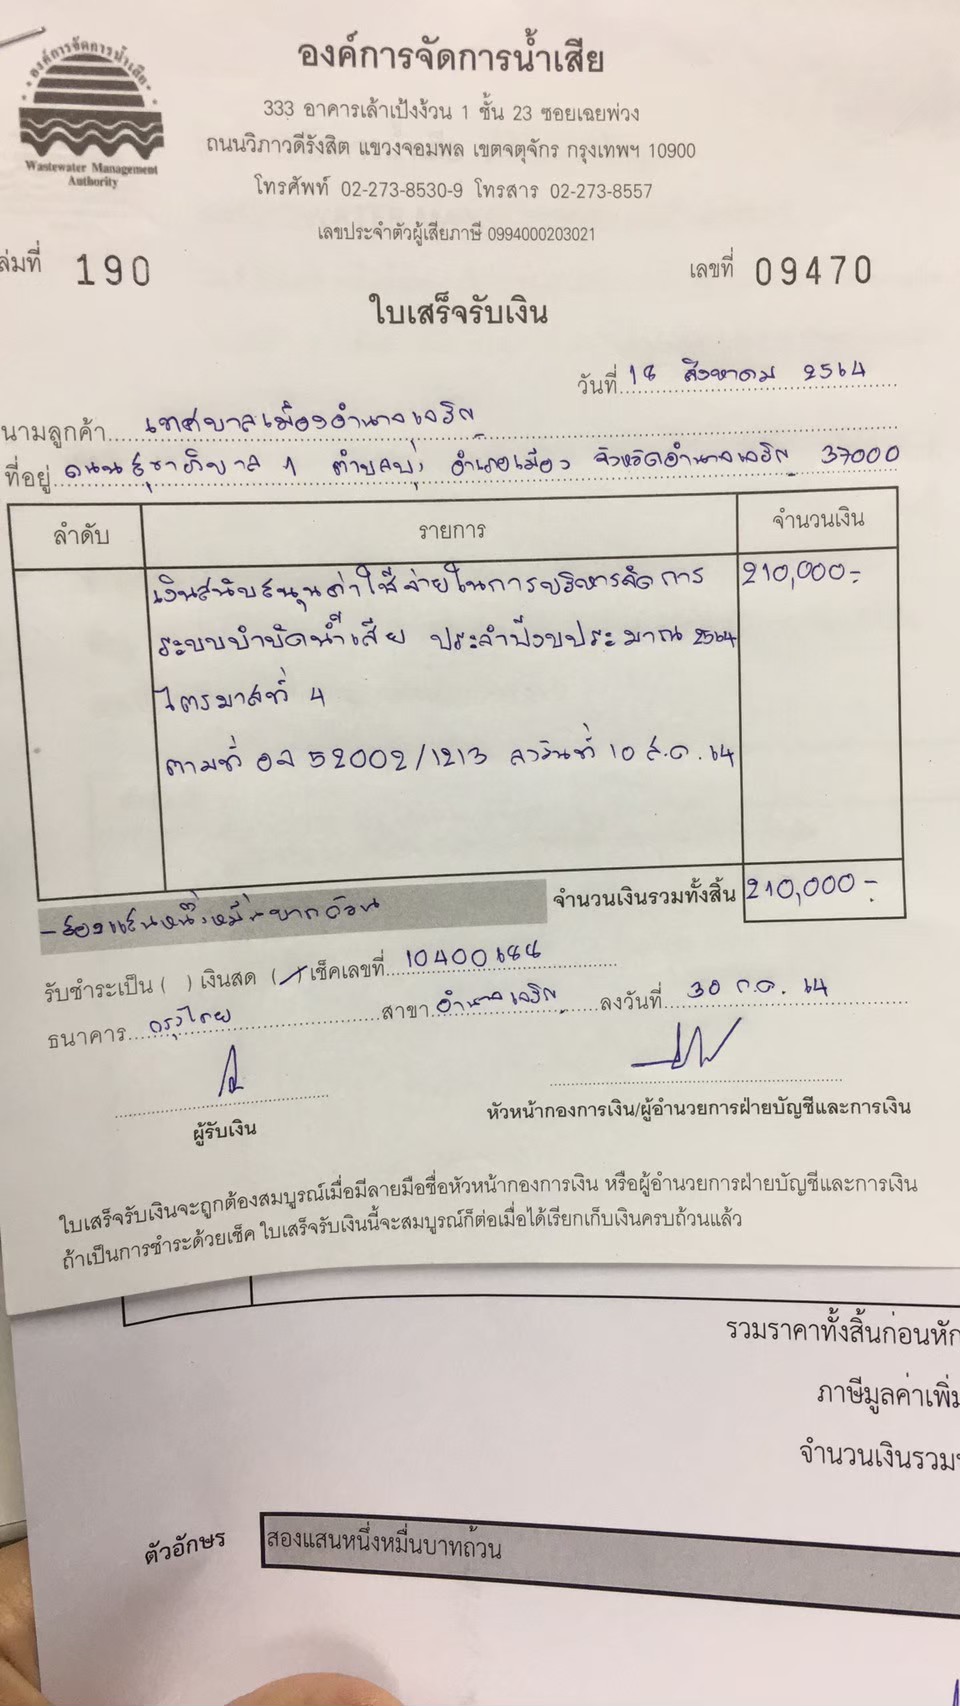 องค์การจัดการน้ำเสีย
333 อาคารเล้าเป้งง้วน 1 ชั้น 23 ซอยเฉยพ่วง
ถนนวิภาวดีรังสิต แขวงจอมพล เขตจตุจักร กรุงเทพฯ 10900
โทรศัพท์ 02-273-8530-9 โทรสาร 02-273-8557
เลขประจำตัวผู้เสียภาษี 0994000203021
องค์การจัดการน้ำเสีย
Wastewater Management
Authority
ล่มที่ 190 เลขที่ 09470
ใบเสร็จรับเงิน
วันที่ 18 สิงหาคม 2564
นามลูกค้า เทศบาลเมืองอำนาจเจริญ
ที่อยู่ ถนนสุขาภิบาล 1 ตำบลบุ่ง อำเภอเมือง จังหวัดอำนาจเจริญ 37000
ลำดับ รายการ จำนวนเงิน
เงินสนับสนุนค่าใช้จ่ายในการบริหารจัดการ 210,000.-
ระบบบำบัดน้ำเสีย ประจำปีงบประมาณ 2564
ไตรมาสที่ 4
ตามที่ อจ 52002/1213 ลงวันที่ 10 ส.ค. 64
-สองแสนหนึ่งหมื่นบาทถ้วน จำนวนเงินรวมทั้งสิ้น 210,000.-
รับชำระเป็น ( ) เงินสด (/) เช็คเลขที่ 10400688
ธนาคาร กรุงไทย สาขา อำนาจเจริญ ลงวันที่ 30 ก.ค. 64
ผู้รับเงิน
หัวหน้ากองการเงิน/ผู้อำนวยการฝ่ายบัญชีและการเงิน
ใบเสร็จรับเงินจะถูกต้องสมบูรณ์เมื่อมีลายมือชื่อหัวหน้ากองการเงิน หรือผู้อำนวยการฝ่ายบัญชีและการเงิน
ถ้าเป็นการชำระด้วยเช็ค ใบเสร็จรับเงินนี้จะสมบูรณ์ก็ต่อเมื่อได้เรียกเก็บเงินครบถ้วนแล้ว
รวมราคาทั้งสิ้นก่อนหัก
ภาษีมูลค่าเพิ่ม
จำนวนเงินรวม
ตัวอักษร สองแสนหนึ่งหมื่นบาทถ้วน